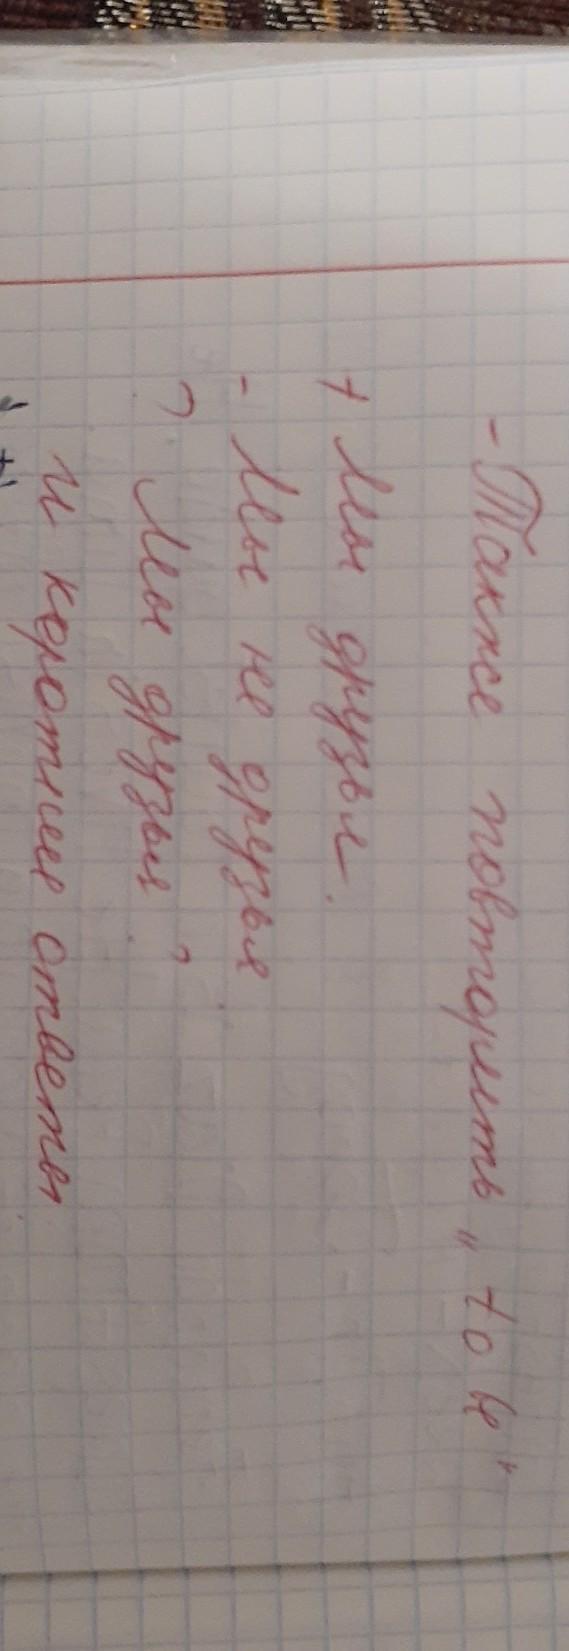 - Также повторить „to be"
+ Мы друзья.
- Мы не друзья
? Мы друзья?
и короткие ответы